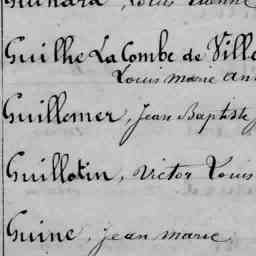 Guinard, Louis Etienne
Guilhe La Combe de Ville
Louis Marie An
Guillemer, Jean Baptiste
Guillotin, Victor Louis
Guine, Jean Marie